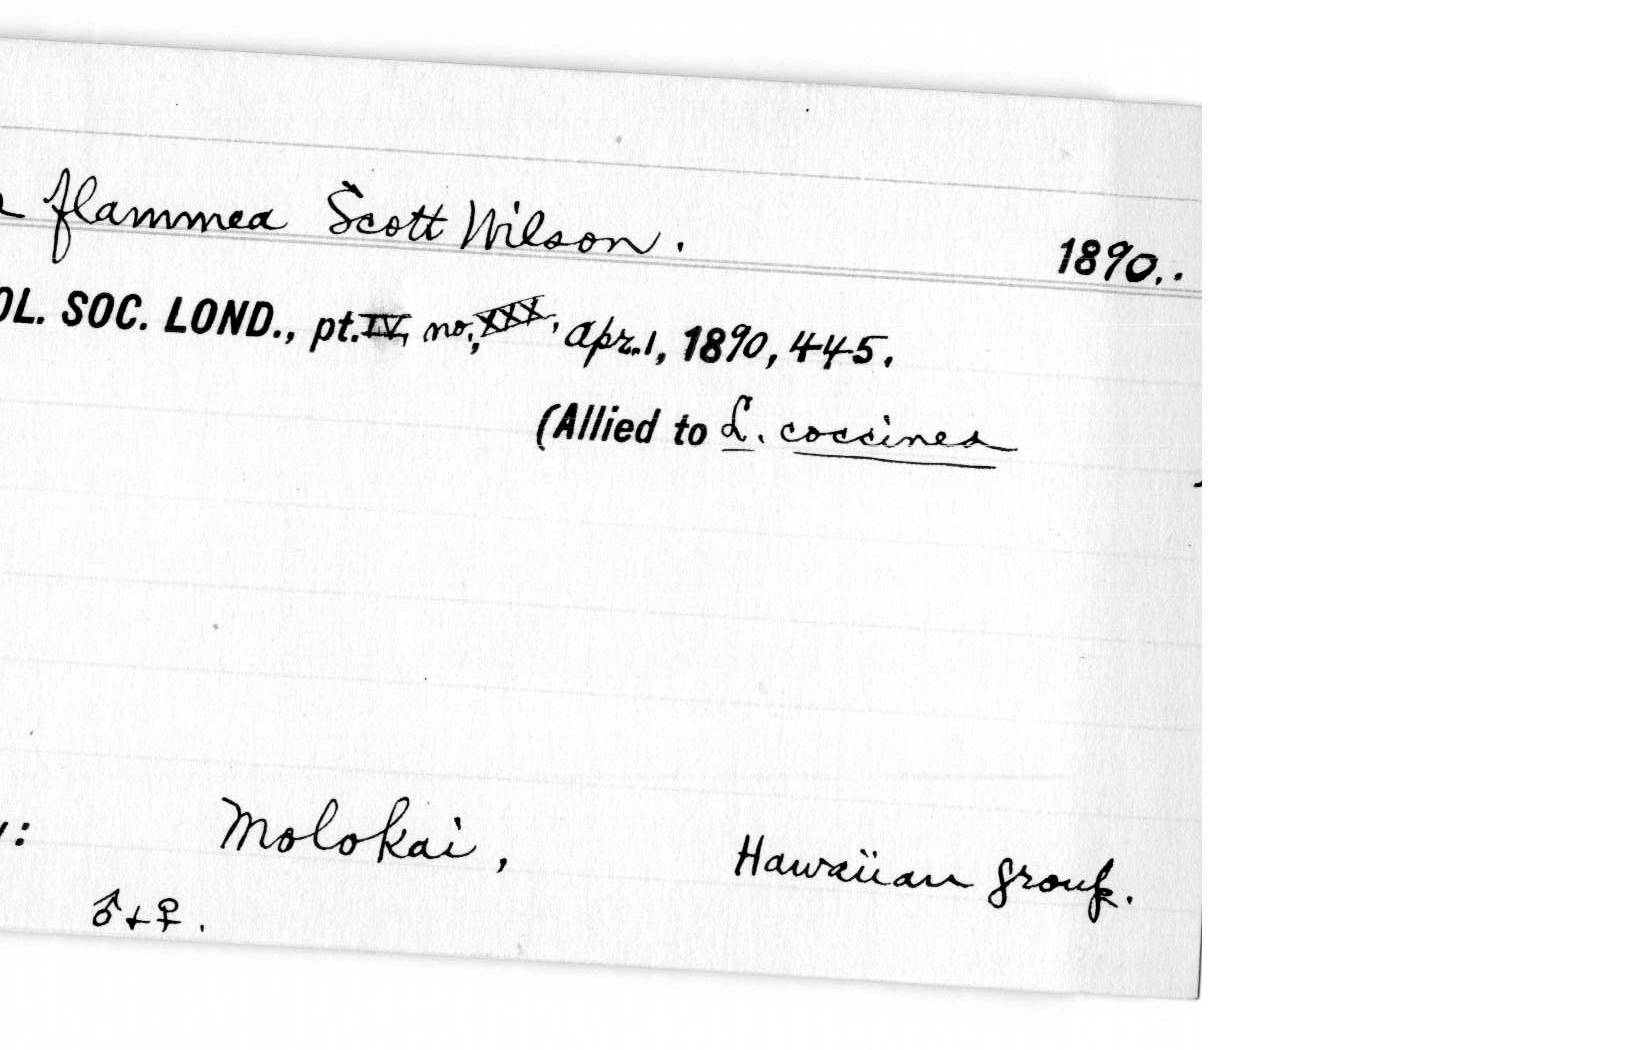 flammea Scott Wilson. 1890..
OL. SOC. LOND., pt. IV, no. XXX, Apr. 1, 1890, 445.
(Allied to L. coccinea
:
Molokai, Hawaiian group.
♂ + ♀.